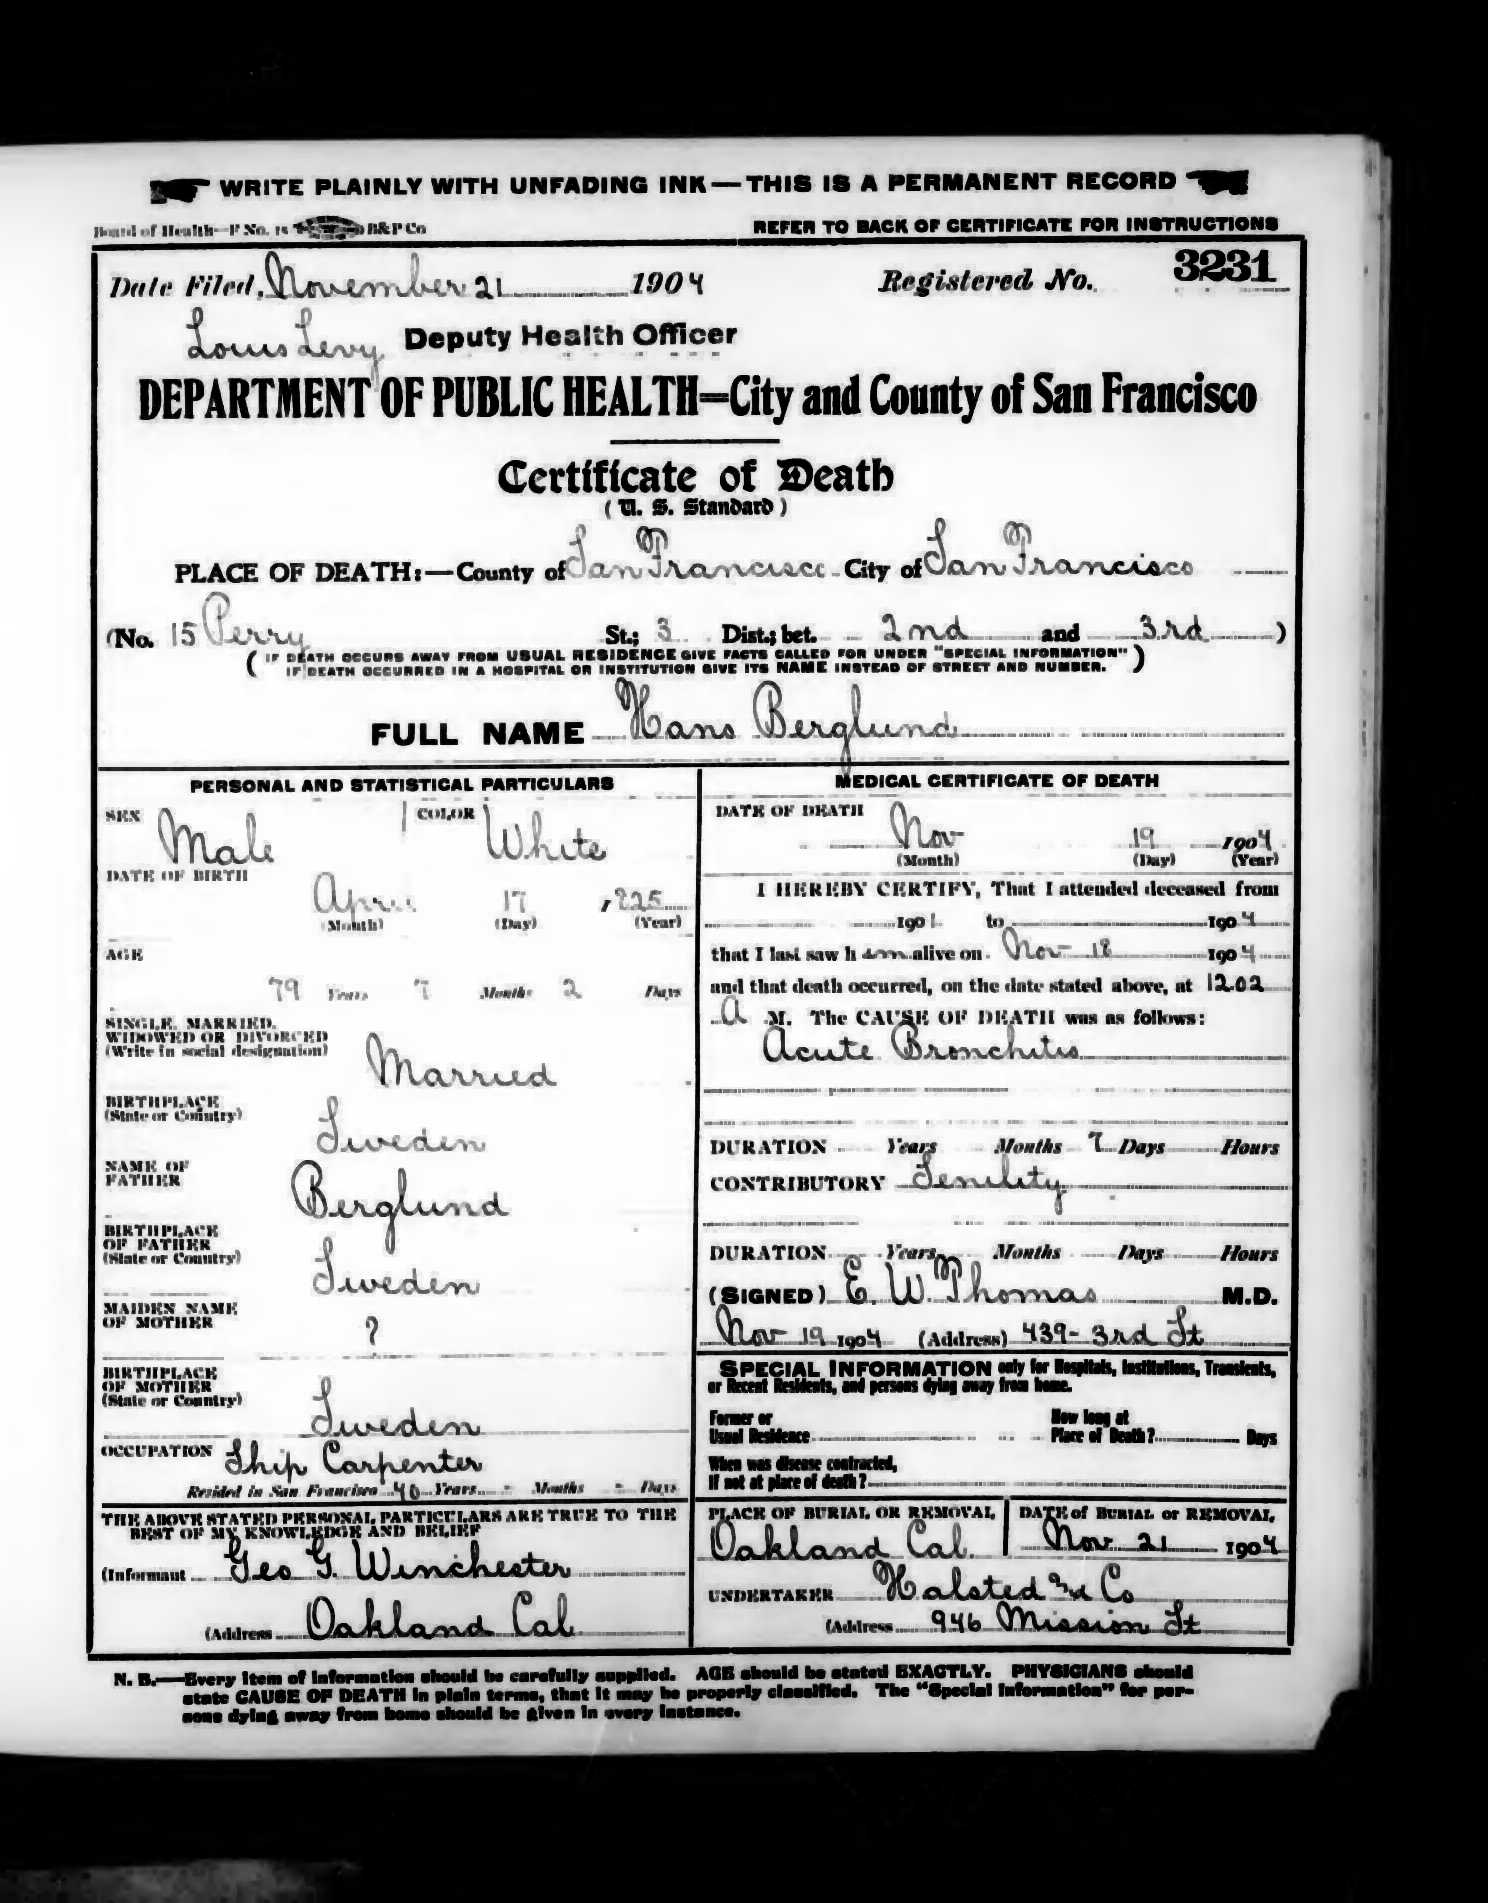 WRITE PLAINLY WITH UNFADING INK—THIS IS A PERMANENT RECORD
Board of Health—F No. 18 B&P Co REFER TO BACK OF CERTIFICATE FOR INSTRUCTIONS
Date Filed, November 21 1904 Registered No. 3231
Louis Levy Deputy Health Officer
DEPARTMENT OF PUBLIC HEALTH=City and County of San Francisco
Certificate of Death
(U. S. Standard)
PLACE OF DEATH:—County of San Francisco City of San Francisco
(No. 15 Perry St.; 3 Dist.; bet. 2nd and 3rd)
(IF DEATH OCCURS AWAY FROM USUAL RESIDENCE GIVE FACTS CALLED FOR UNDER "SPECIAL INFORMATION"
IF DEATH OCCURRED IN A HOSPITAL OR INSTITUTION GIVE ITS NAME INSTEAD OF STREET AND NUMBER.)
FULL NAME Hans Berglund
PERSONAL AND STATISTICAL PARTICULARS
SEX Male COLOR White
DATE OF BIRTH
April 17 1825
(Month) (Day) (Year)
AGE
79 Years 7 Months 2 Days
SINGLE, MARRIED,
WIDOWED OR DIVORCED
(Write in social designation) Married
BIRTHPLACE
(State or Country) Sweden
NAME OF
FATHER Berglund
BIRTHPLACE
OF FATHER
(State or Country) Sweden
MAIDEN NAME
OF MOTHER ?
BIRTHPLACE
OF MOTHER
(State or Country) Sweden
OCCUPATION Ship Carpenter
Resided in San Francisco 40 Years - Months - Days
THE ABOVE STATED PERSONAL PARTICULARS ARE TRUE TO THE
BEST OF MY KNOWLEDGE AND BELIEF
(Informant Geo G. Winchester
(Address Oakland Cal
MEDICAL CERTIFICATE OF DEATH
DATE OF DEATH
Nov 19 1904
(Month) (Day) (Year)
I HEREBY CERTIFY, That I attended deceased from
1901 to 1904
that I last saw him alive on Nov 18 1904
and that death occurred, on the date stated above, at 12.02
A M. The CAUSE OF DEATH was as follows:
Acute Bronchitis
DURATION Years Months 7 Days Hours
CONTRIBUTORY Senility
DURATION Years Months Days Hours
(SIGNED) E. W. Thomas M.D.
Nov 19 1904 (Address) 439-3rd St
SPECIAL INFORMATION only for Hospitals, Institutions, Transients,
or Recent Residents, and persons dying away from home.
Former or
Usual Residence How long at
Place of Death? Days
When was disease contracted,
If not at place of death?
PLACE OF BURIAL OR REMOVAL DATE of BURIAL or REMOVAL
Oakland Cal. Nov 21 1904
UNDERTAKER Halsted and Co
(Address 946 Mission St
N. B.—Every item of information should be carefully supplied. AGE should be stated EXACTLY. PHYSICIANS should
state CAUSE OF DEATH in plain terms, that it may be properly classified. The "Special Information" for per-
sons dying away from home should be given in every instance.